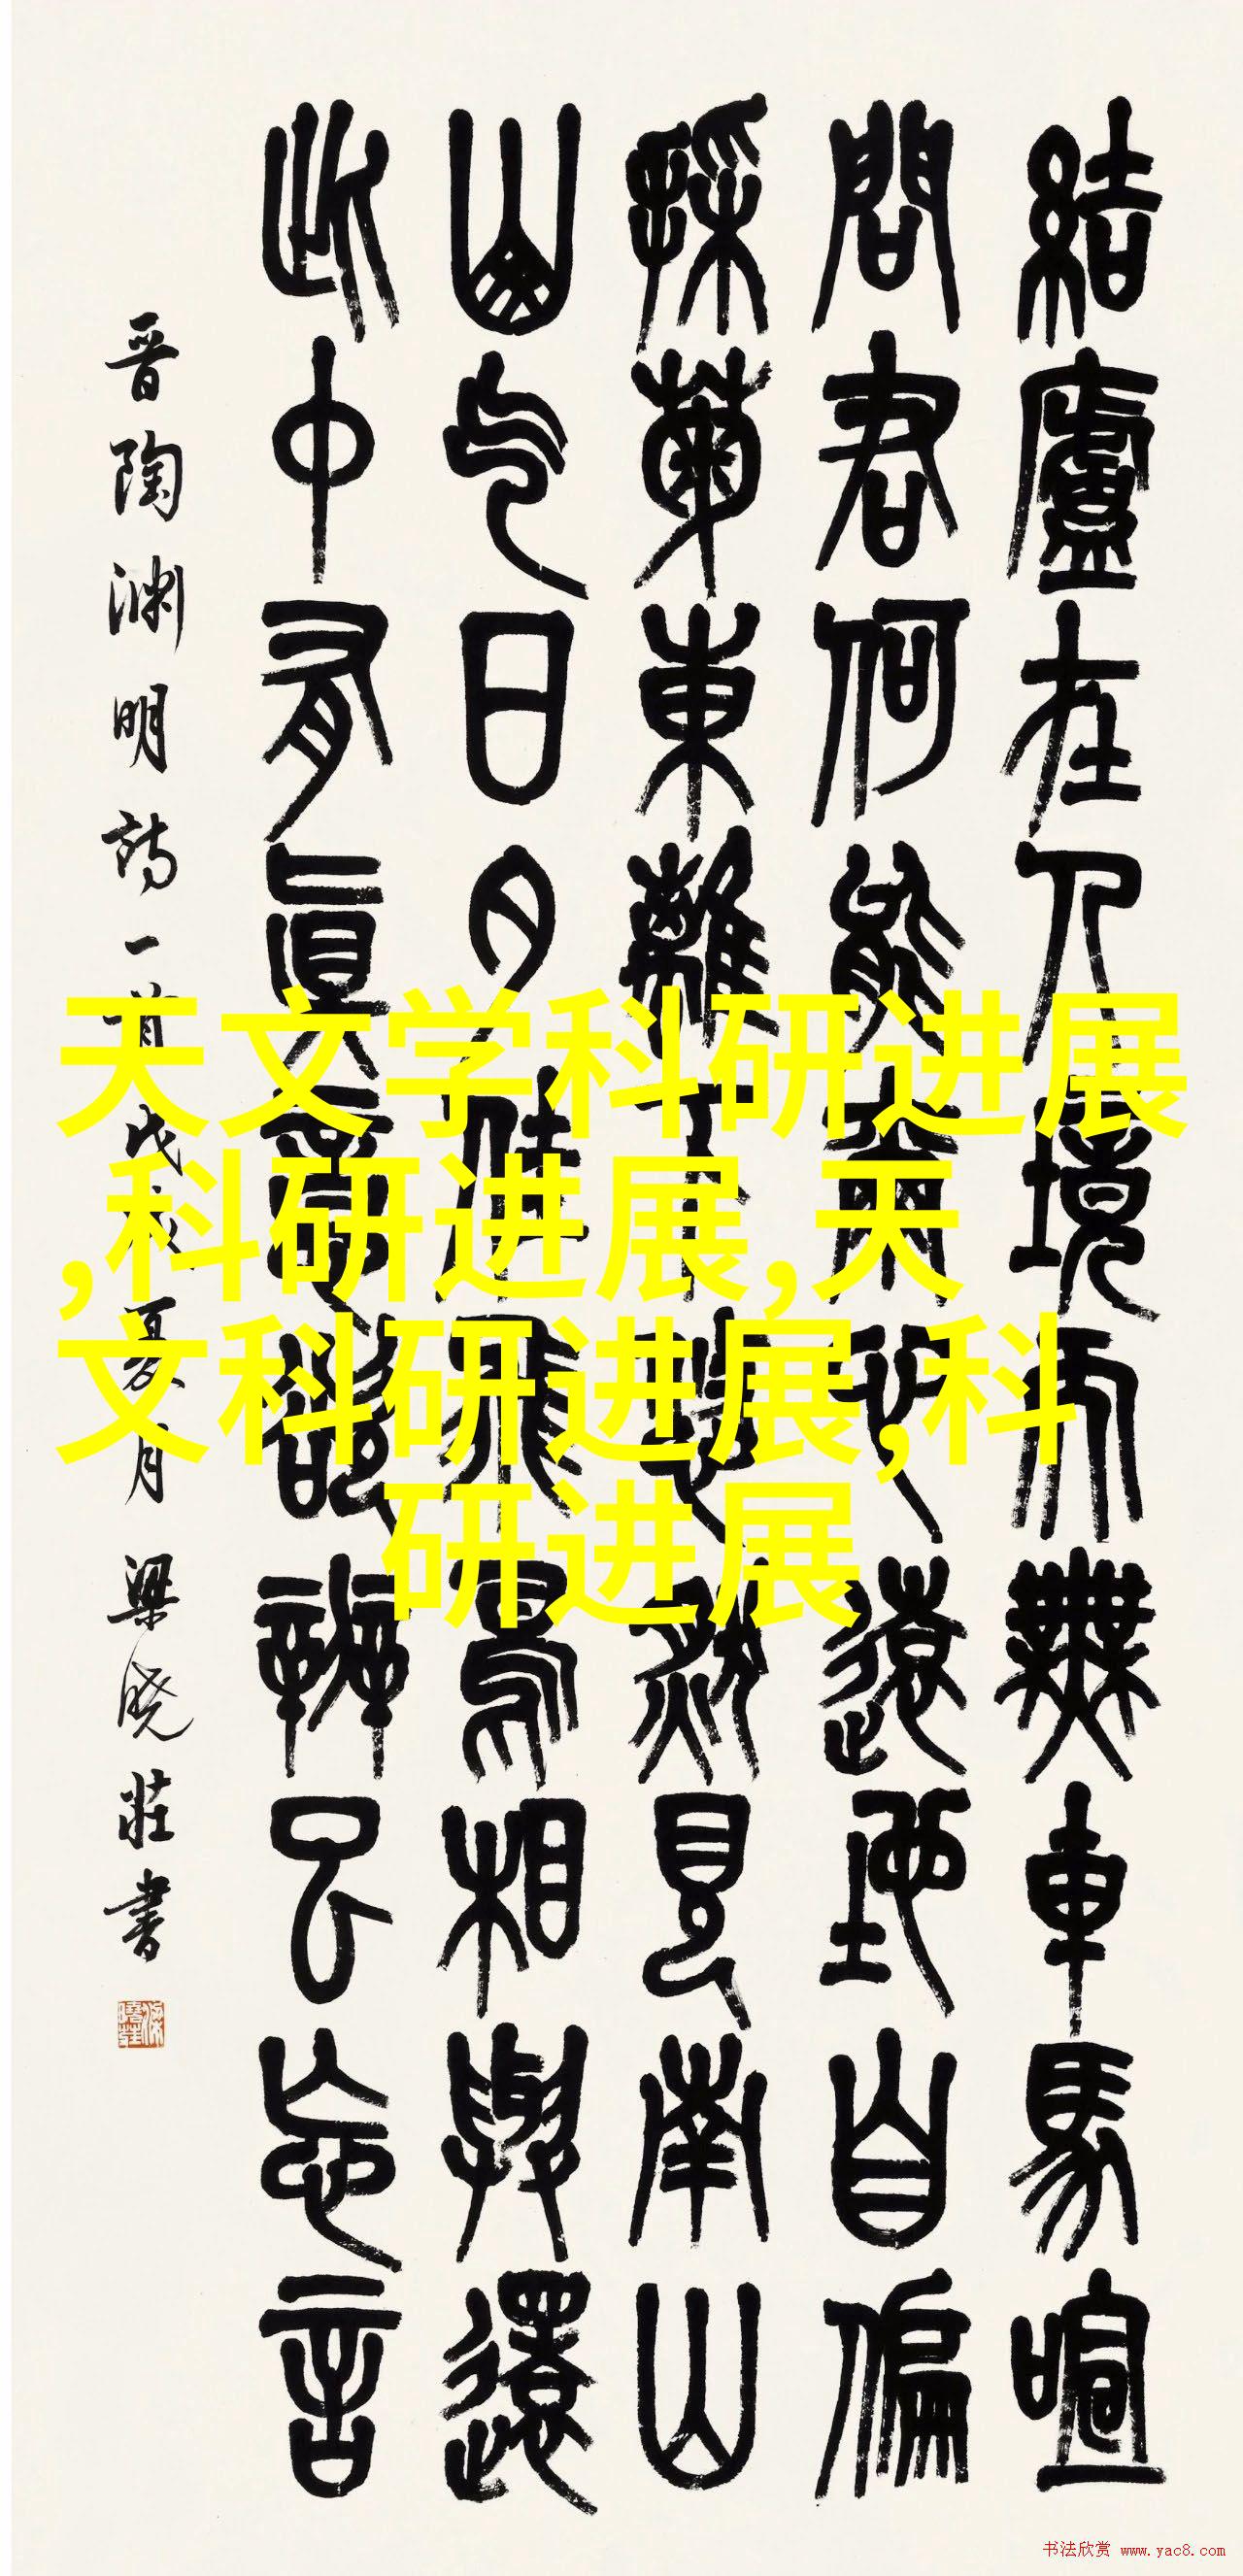 結廬在人境而無車馬喧
問君何能爾心遠地自偏
採菊東籬下悠然見南山
山气日夕佳飛鳥相與還
此中有眞意欲辨已忘言
晋陶渊明诗一首戊戌夏月梁晓莊書
天文学科研进展
,科研进展,天
文科研进展,科
研进展
书法欣赏 www.yac8.com